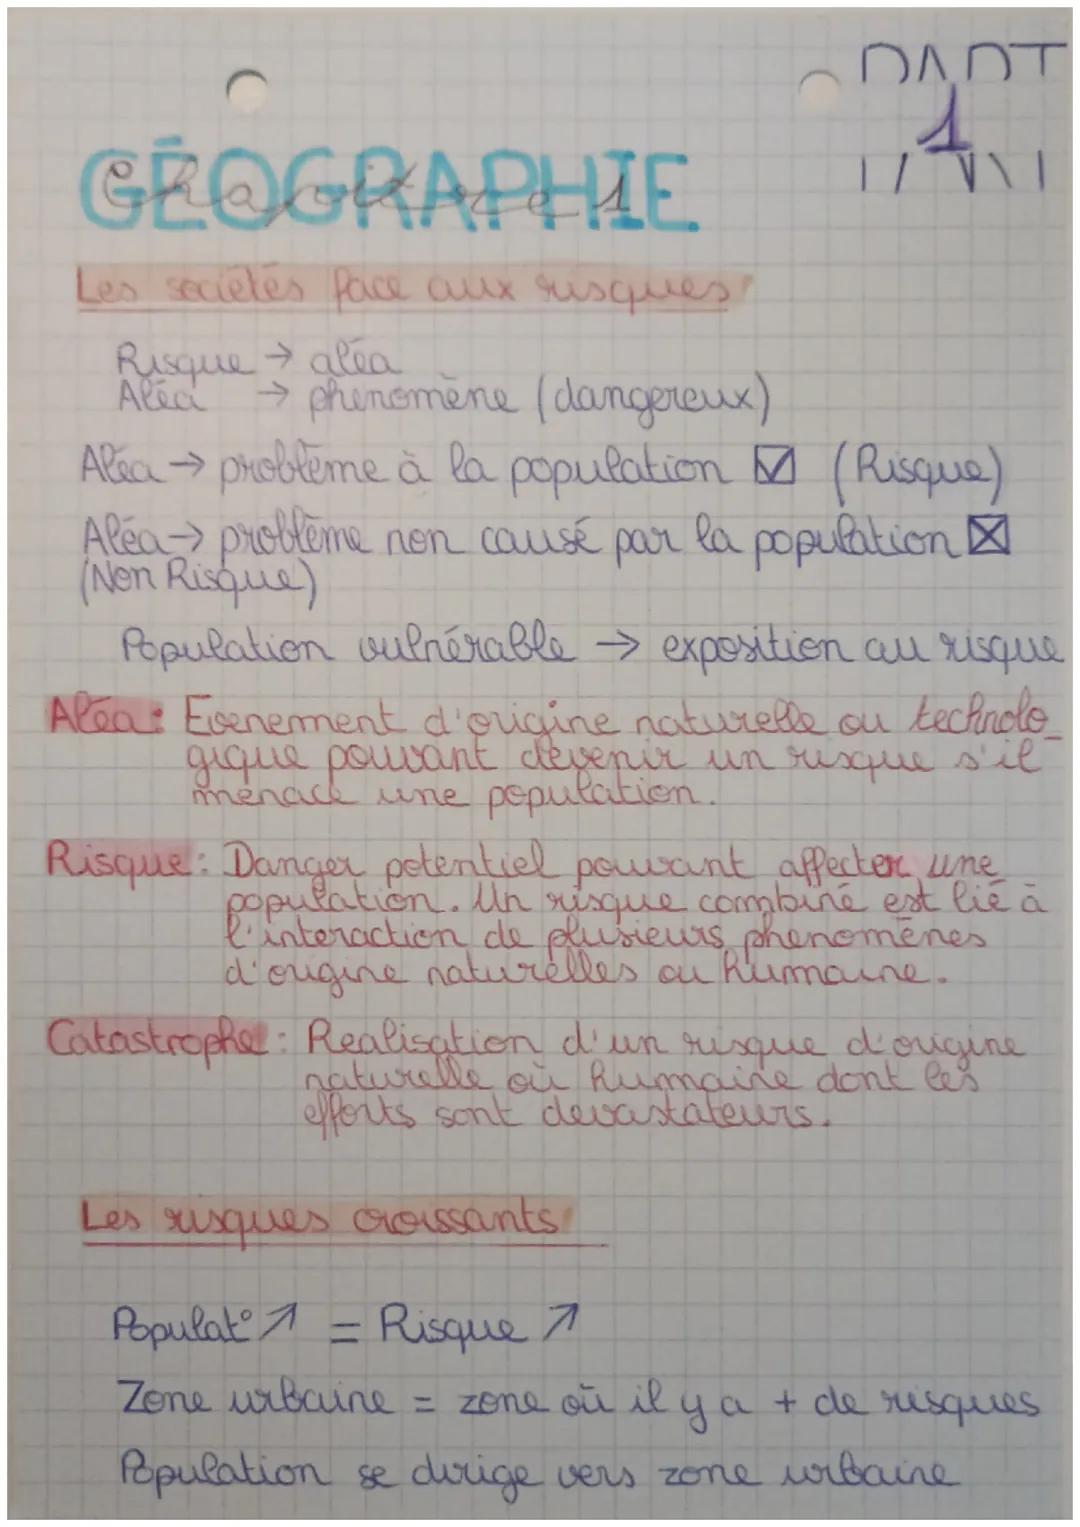 PART
1
GÉOGRAPHIE
Chapitre 1
Les sociétés face aux risques
Risque → aléa
Aléa → phénomène (dangereux)
Aléa → problème à la population ☑ (Risque)
Aléa → problème non causé par la population ☒
(Non Risque)
Population vulnérable → exposition au risque
Aléa : Evenement d'origine naturelle ou technolo_
gique pouvant devenir un risque s'il
menace une population.
Risque : Danger potentiel pouvant affecter une
population. Un risque combiné est lié à
l'interaction de plusieurs phenomènes
d'origine naturelles ou humaine.
Catastrophe : Realisation d'un risque d'origine
naturelle où humaine dont les
efforts sont devastateurs.
Les risques croissants
Populat° ↗ = Risque ↗
Zone urbaine = zone où il y a + de risques
Population se dirige vers zone urbaine